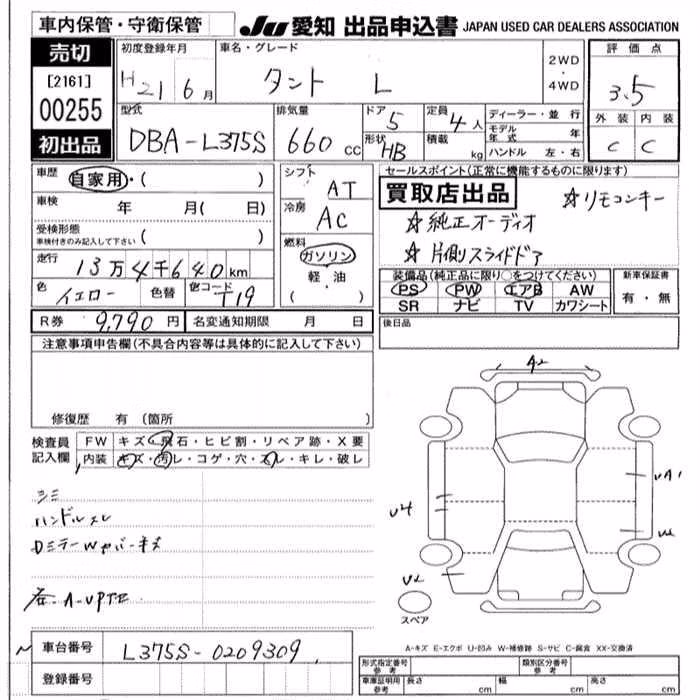 車内保管・守衛保管 JU 愛知 出品申込書 JAPAN USED CAR DEALERS ASSOCIATION
売切
[2161]
00255
初出品
初度登録年月
H21年6月
車名・グレード
タント L
2WD
・
4WD
評価点
3.5
外装 内装
C C
型式
DBA-L375S
排気量
660 cc
ドア 5
形状 HB
定員 4人
積載 kg
ディーラー・並行
モデル年式 年
ハンドル 左・右
車歴 自家用・( )
車検 年 月( 日)
受検形態
車検付きのみ記入して下さい ( )
走行 13万4千640km
色 イエロー 色替 色コード T19
シフト AT
冷房 AC
燃料
ガソリン
軽・油
( )
セールスポイント(正常に機能するものに限ります)
買取店出品 ☆リモコンキー
☆純正オーディオ
☆片側スライドドア
装備品(純正品に限り○をつけてください)
PS PW エアB AW
SR ナビ TV カワシート
新車保証書
有・無
R券 9,790円 名変通知期限 月 日
後日品
注意事項申告欄(不具合内容等は具体的に記入して下さい)
修復歴 有 (箇所 )
検査員
記入欄
FW キズ・飛石・ヒビ割・リペア跡・X要
内装 キズ・汚レ・コゲ・穴・スレ・キレ・破レ
シミ
ハンドルスレ
A2
U4
U2
スペア
A-キズ E-エクボ U-凹み W-補修跡 S-サビ C-腐食 XX-交換済
車台番号 L375S-0209309
登録番号
形式指定番号
参考
類別区分番号
参考
車庫証明用
参考
長さ cm 幅 cm 高さ cm